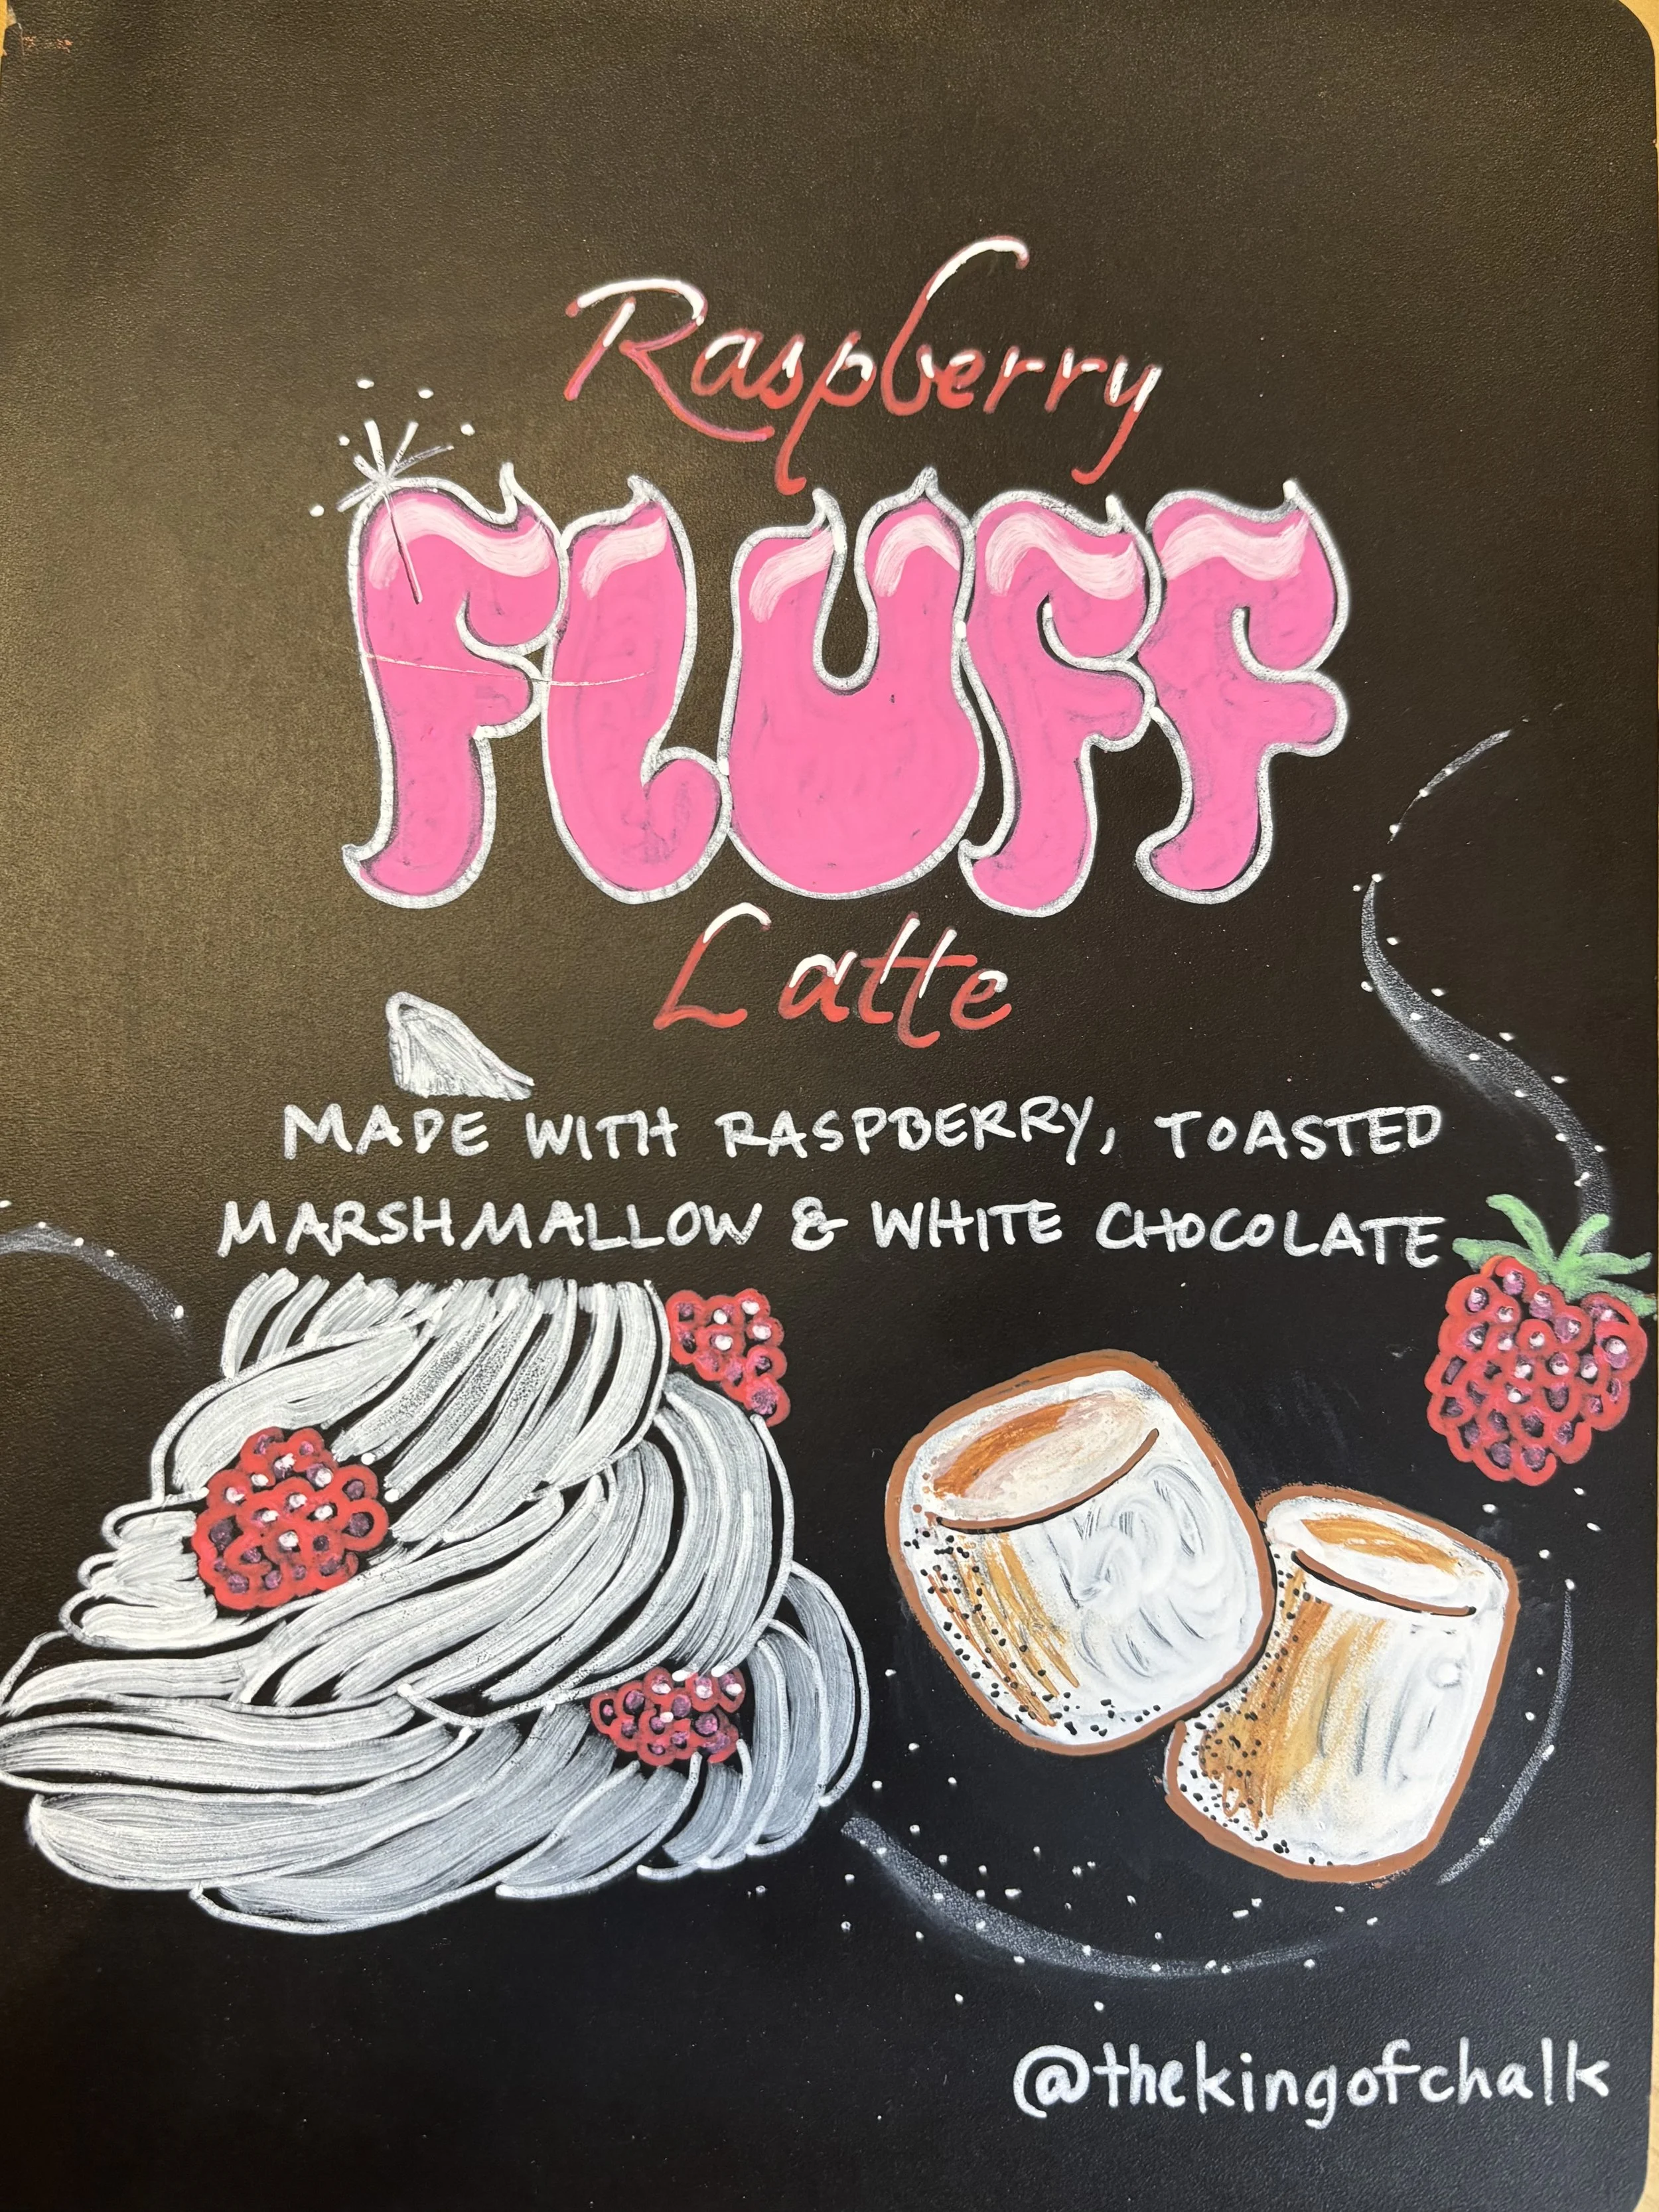 Raspberry
FLUFF
Latte
MADE WITH RASPBERRY, TOASTED
MARSHMALLOW & WHITE CHOCOLATE
@thekingofchalk